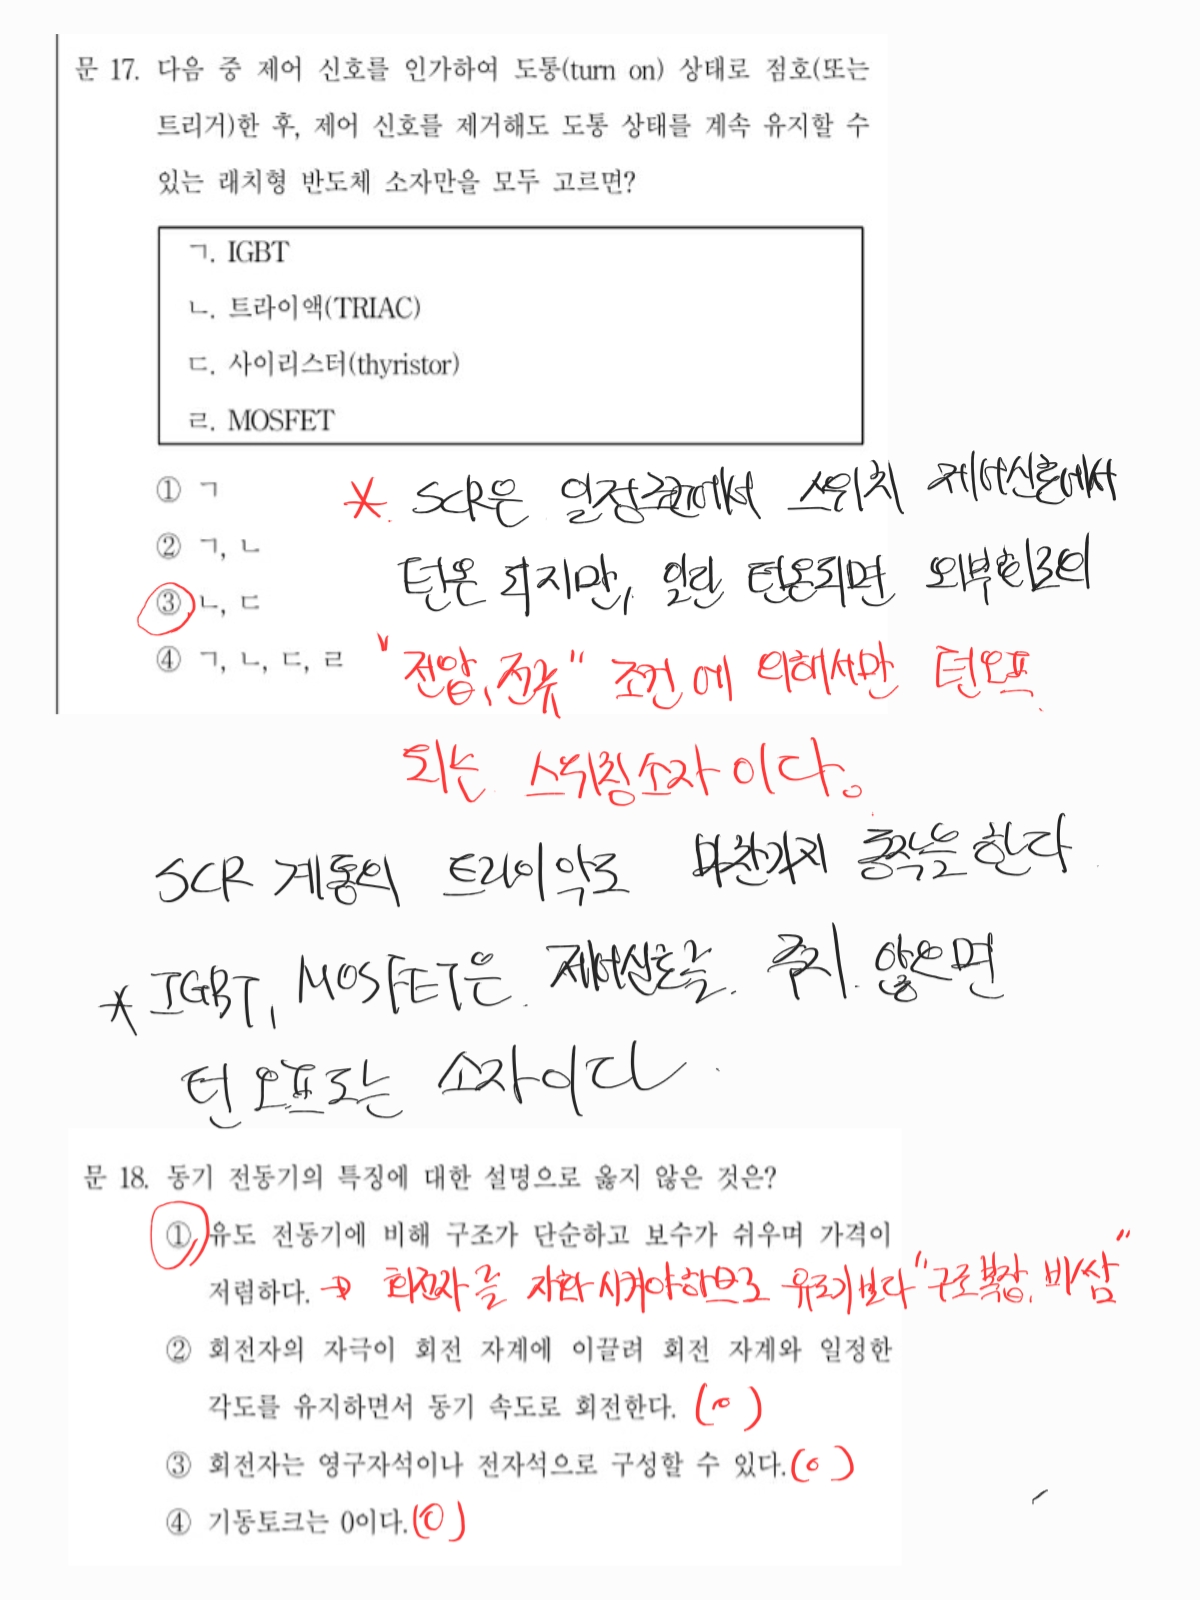 문 17. 다음 중 제어 신호를 인가하여 도통(turn on) 상태로 점호(또는
트리거)한 후, 제어 신호를 제거해도 도통 상태를 계속 유지할 수
있는 래치형 반도체 소자만을 모두 고르면?
ㄱ. IGBT
ㄴ. 트라이액(TRIAC)
ㄷ. 사이리스터(thyristor)
ㄹ. MOSFET
① ㄱ
② ㄱ, ㄴ
③ ㄴ, ㄷ
④ ㄱ, ㄴ, ㄷ, ㄹ
* SCR은 일정 스위치 제어신호에서
턴온 되지만, 일단 턴온되면 외부회로의
"전압, 전류" 조건에 의해서만 턴오프
되는 스위칭소자이다.
SCR 계통의 트라이악도 마찬가지 동작을 한다
* IGBT, MOSFET은 제어신호를 주지 않으면
턴 오프되는 소자이다.
문 18. 동기 전동기의 특징에 대한 설명으로 옳지 않은 것은?
① 유도 전동기에 비해 구조가 단순하고 보수가 쉬우며 가격이
저렴하다. → 회전자를 자화시켜야하므로 유도기보다 "구조복잡, 비쌈"
② 회전자의 자극이 회전 자계에 이끌려 회전 자계와 일정한
각도를 유지하면서 동기 속도로 회전한다. (o)
③ 회전자는 영구자석이나 전자석으로 구성할 수 있다. (o)
④ 기동토크는 0이다. (o)